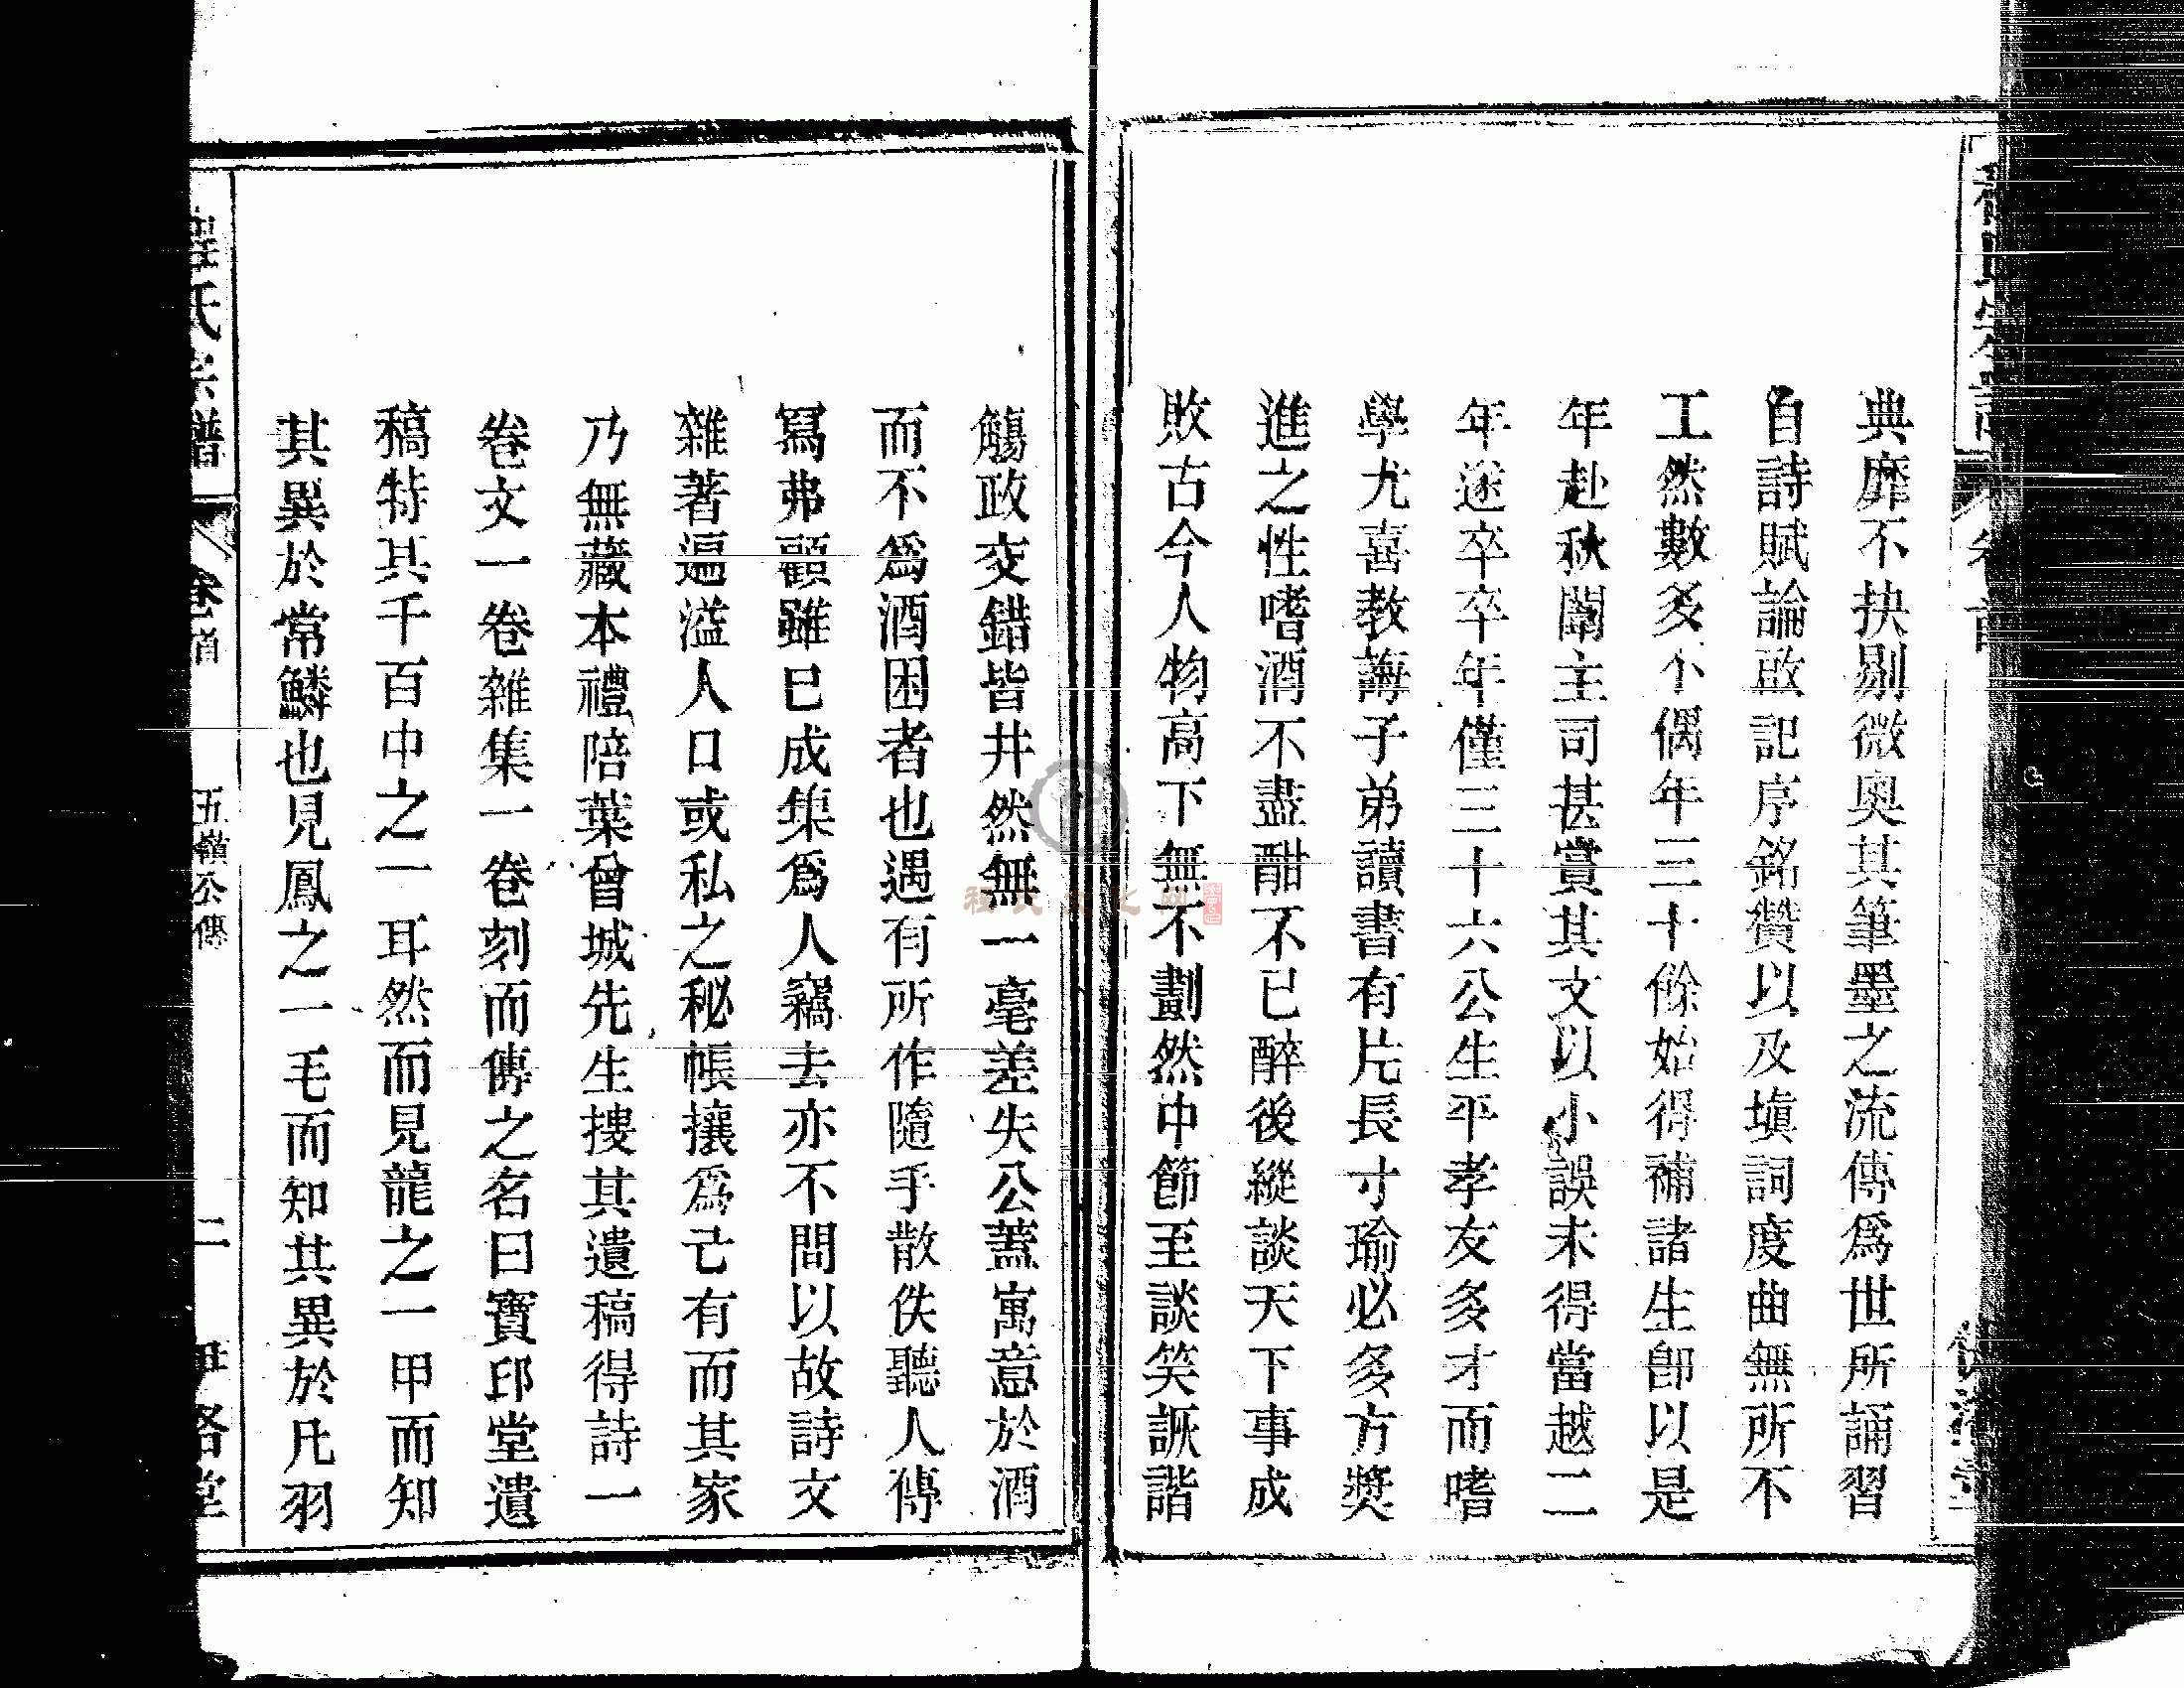 典靡不抉剔微奥其筆墨之流傳爲世所誦習
自詩賦論啟記序銘贊以及塡詞度曲無所不
工然數多不偶年三十餘始得補諸生卽以是
年赴秋闈主司甚賞其文以小誤未得當越二
年遂卒卒年僅三十六公生平孝友多才而嗜
學尤喜教誨子弟讀書有片長寸瑜必多方奬
進之性嗜酒不盡酣不已醉後縱談天下事成
敗古今人物高下無不劃然中節至談笑詼諧
觴政交錯皆井然無一毫差失公蓋寓意於酒
而不爲酒困者也遇有所作隨手散佚聽人傳
寫弗顧雖已成集爲人竊去亦不問以故詩文
雜著遍溢人口或私之秘帳攘爲己有而其家
乃無藏本禮陪葉曾城先生摟其遺稿得詩一
卷文一卷雜集一卷刻而傳之名曰寶邱堂遺
稿特其千百中之一耳然而見龍之一甲而知
其異於常鱗也見鳳之一毛而知其異於凡羽
程氏宗譜 卷首 五嶺公傳 二 伊洛堂
程氏文化网